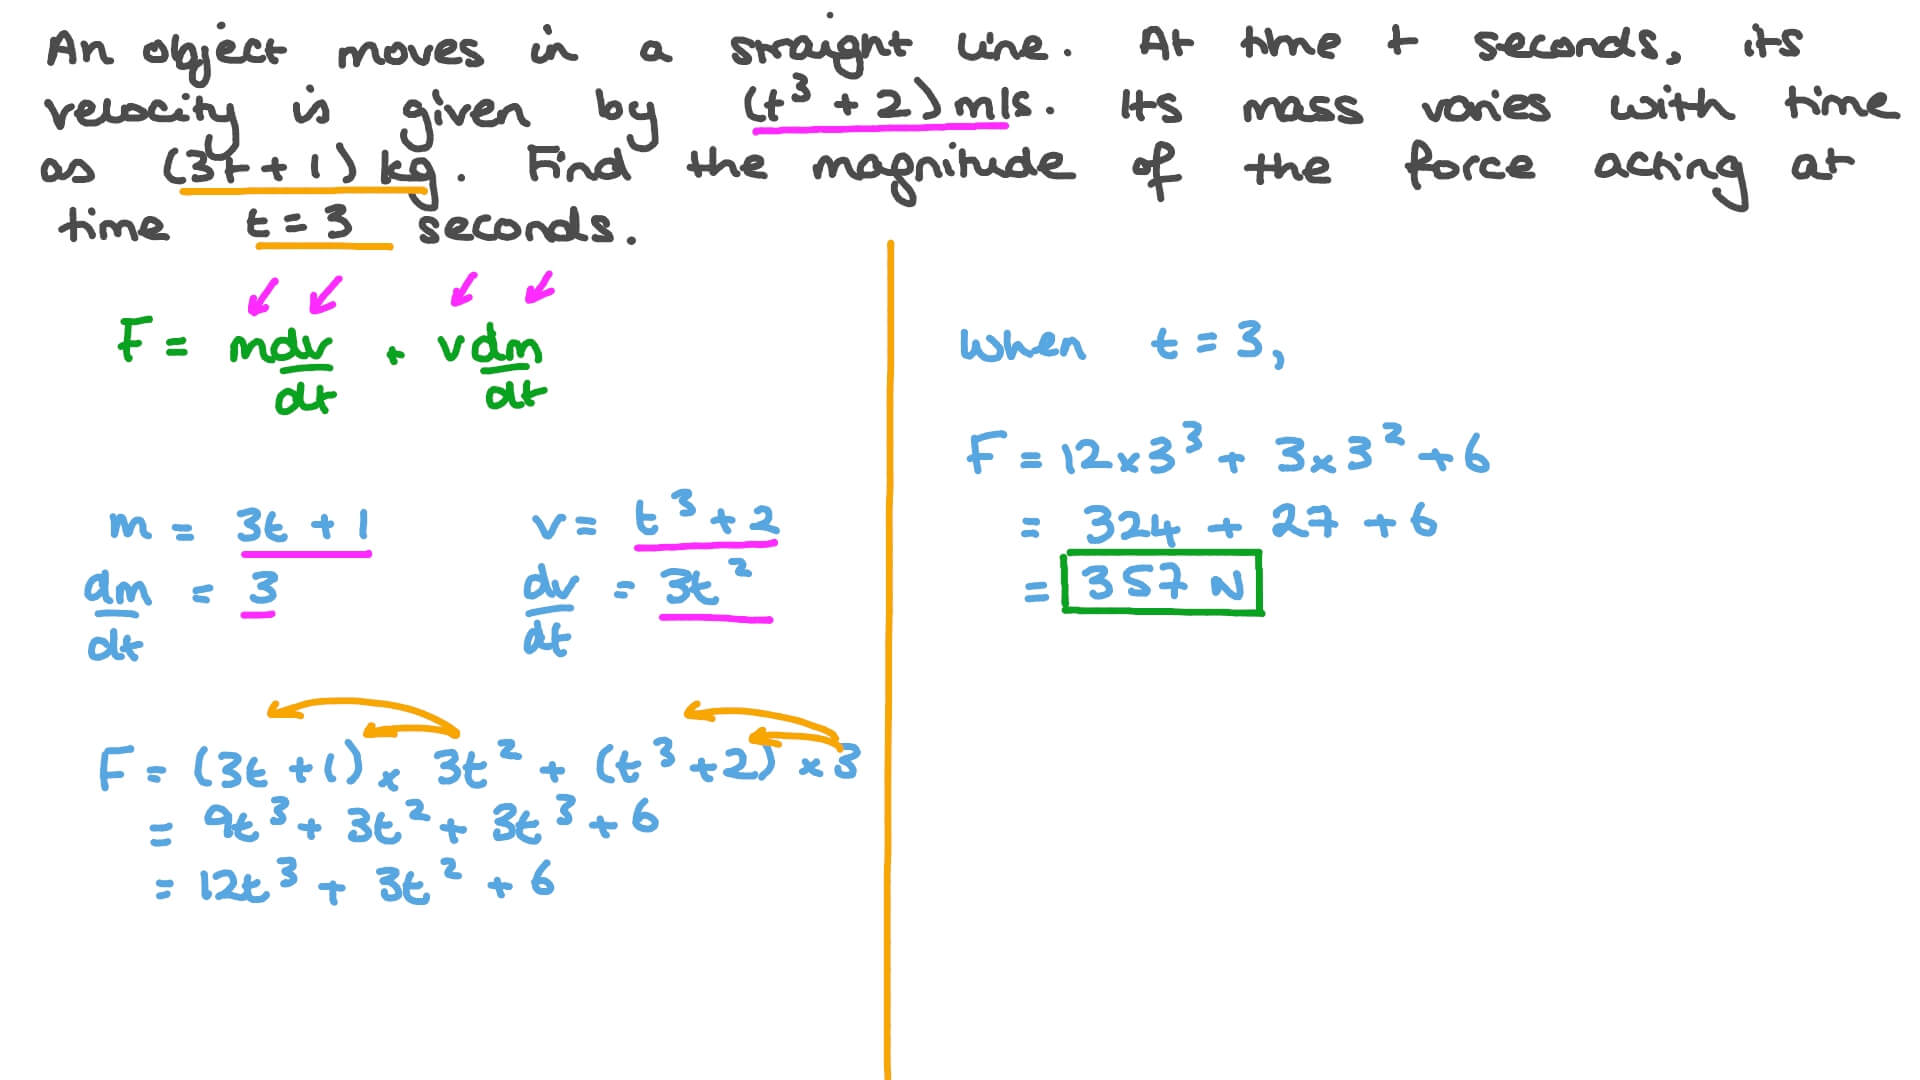 An object moves in a straight line. At time t seconds, its
velocity is given by (t³ + 2) m/s. Its mass varies with time
as (3t + 1) kg. Find the magnitude of the force acting at
time t = 3 seconds.
F = m dv/dt + v dm/dt
m = 3t + 1
dm/dt = 3
v = t³ + 2
dv/dt = 3t²
F = (3t + 1) × 3t² + (t³ + 2) × 3
= 9t³ + 3t² + 3t³ + 6
= 12t³ + 3t² + 6
When t = 3,
F = 12 × 3³ + 3 × 3² + 6
= 324 + 27 + 6
= 357 N